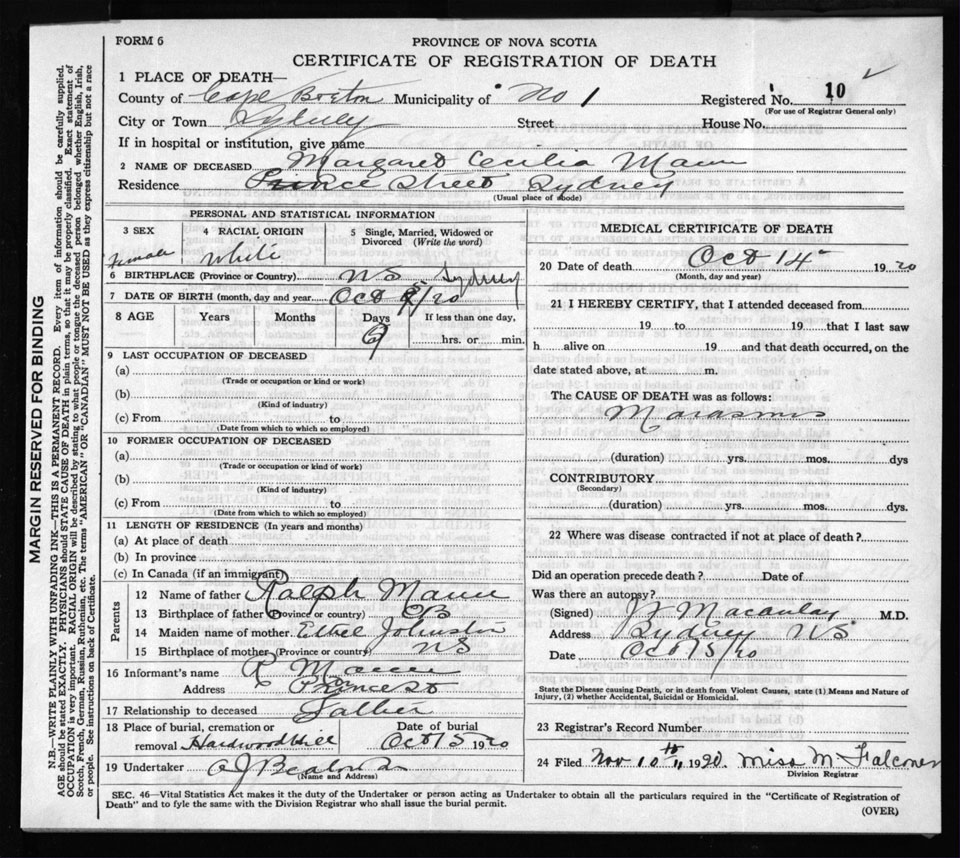 FORM 6
PROVINCE OF NOVA SCOTIA
CERTIFICATE OF REGISTRATION OF DEATH
1 PLACE OF DEATH—
County of Cape Breton Municipality of No 1 Registered No. 10
(For use of Registrar General only)
City or Town Sydney Street House No.
If in hospital or institution, give name
2 NAME OF DECEASED Margaret Cecilia Mann
Residence Prince Street Sydney
(Usual place of abode)
PERSONAL AND STATISTICAL INFORMATION
3 SEX 4 RACIAL ORIGIN 5 Single, Married, Widowed or Divorced (Write the word)
Female White
6 BIRTHPLACE (Province or Country) NS Sydney
7 DATE OF BIRTH (month, day and year) Oct 5/20
8 AGE Years Months Days If less than one day,
9 hrs. or min.
9 LAST OCCUPATION OF DECEASED
(a)
(Trade or occupation or kind or work)
(b)
(Kind of industry)
(c) From to
(Date from which to which so employed)
10 FORMER OCCUPATION OF DECEASED
(a)
(Trade or occupation or kind of work)
(b)
(Kind of industry)
(c) From to
(Date from which to which so employed)
11 LENGTH OF RESIDENCE (In years and months)
(a) At place of death
(b) In province
(c) In Canada (if an immigrant)
Parents
12 Name of father Ralph Mann
13 Birthplace of father (Province or country) CB
14 Maiden name of mother. Ethel Johnston
15 Birthplace of mother (Province or country) NS
16 Informant's name R Mann
Address Prince St
17 Relationship to deceased Father
18 Place of burial, cremation or removal Hardwood Hill Date of burial Oct 15 1920
19 Undertaker A J Beaton
(Name and Address)
MEDICAL CERTIFICATE OF DEATH
20 Date of death Oct 14 1920
(Month, day and year)
21 I HEREBY CERTIFY, that I attended deceased from
19 to 19 that I last saw
h alive on 19 and that death occurred, on the
date stated above, at m.
The CAUSE OF DEATH was as follows:
Marasmus
(duration) yrs. mos. dys
CONTRIBUTORY
(Secondary)
(duration) yrs. mos. dys.
22 Where was disease contracted if not at place of death?
Did an operation precede death? Date of
Was there an autopsy?
(Signed) Macaulay M.D.
Address Sydney NS
Date Oct 15/20
State the Disease causing Death, or in death from Violent Causes, state (1) Means and Nature of
Injury, (2) whether Accidental, Suicidal or Homicidal.
23 Registrar's Record Number
24 Filed Nov 10th, 1920. Miss M Falconer
Division Registrar
SEC. 46—Vital Statistics Act makes it the duty of the Undertaker or person acting as Undertaker to obtain all the particulars required in the "Certificate of Registration of
Death" and to fyle the same with the Division Registrar who shall issue the burial permit.
(OVER)
MARGIN RESERVED FOR BINDING
N.B.—WRITE PLAINLY WITH UNFADING INK—THIS IS A PERMANENT RECORD. Every item of information should be carefully supplied.
AGE should be stated EXACTLY. PHYSICIANS should STATE CAUSE OF DEATH in plain terms, so that it may be properly classified. Exact statement of
OCCUPATION is very important. RACIAL ORIGIN will be described by stating to what people or tongue the deceased person belonged whether English, Irish,
Scotch, French, German, Russian, Ruthenian, etc. The terms "AMERICAN" OR "CANADIAN" MUST NOT BE USED as they express citizenship but not a race
or people. See instructions on back of Certificate.